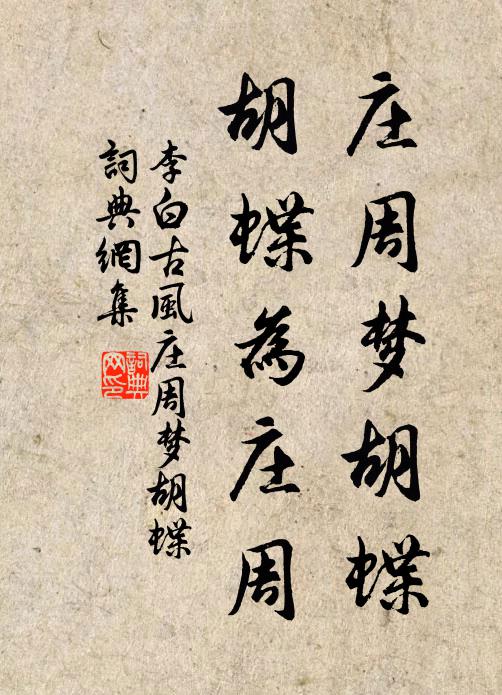 庄周梦胡蝶
胡蝶為庄周
李白古風庄周梦胡蝶
詞典網集
詞典網印